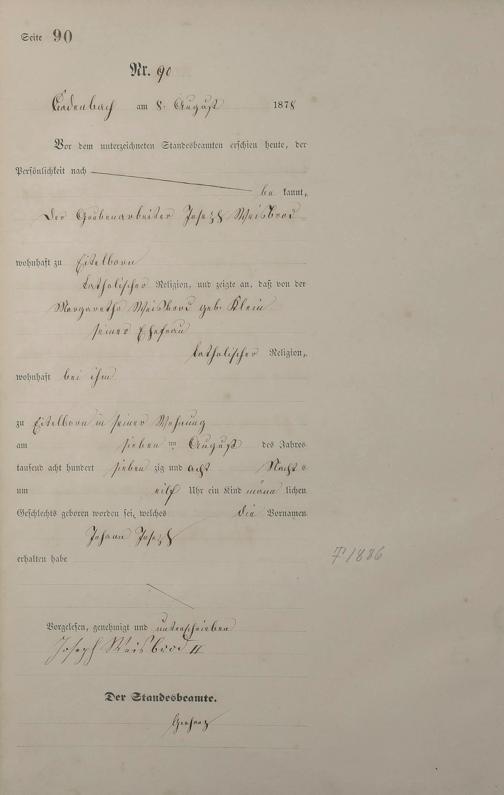 Seite 90
Nr. 90
Cadenbach am 8. August 1878
Vor dem unterzeichneten Standesbeamten erschien heute, der
Persönlichkeit nach
be kannt,
der Grubenarbeiter Joseph Weisbrod
wohnhaft zu Eitelborn
katholischer Religion, und zeigte an, daß von der
Margaretha Weisbrod geb. Klein
seiner Ehefrau
katholischer Religion,
wohnhaft bei ihm
zu Eitelborn in seiner Wohnung
am sieben ten August des Jahres
tausend acht hundert sieben zig und acht Nachts
um eilf Uhr ein Kind männ lichen
Geschlechts geboren worden sei, welches die Vornamen
Johann Joseph
erhalten habe
Vorgelesen, genehmigt und unterschrieben
Joseph Weisbrod II
Der Standesbeamte.
† 1886